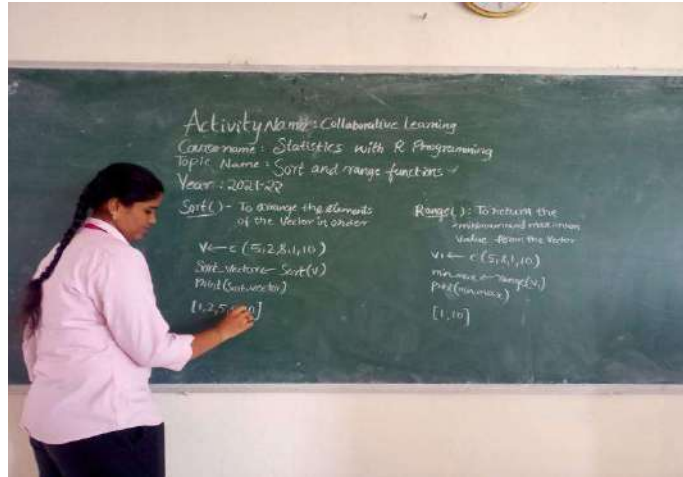 Activity Name: Collaborative Learning
Course name: Statistics with R Programming
Topic Name: Sort and range functions
Year: 2021-22
Sort() - To arrange the elements
of the Vector in order
V ← c(5,2,8,1,10)
Sort_vector ← Sort(v)
Print(sort_vector)
[1,2,5
Range(): To return the
minimum and maximum
Value from the Vector
V1 ← c(5,2,8,1,10)
min_max ← range(v1)
print(min_max)
[1,10]